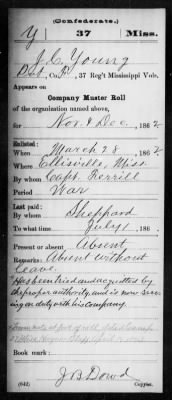 (Confederate.)
Y 37 Miss.
J. C. Young
Pvt, Co. F, 37 Reg't Mississippi Vols.
Appears on
Company Master Roll
of the organization named above,
for Nov. & Dec, 1862
Enlisted:
When March 28, 1862
Where Ellisville, Miss.
By whom Capt. Terrill
Period War
Last paid:
By whom Sheppard
To what time July 1, 186
Present or absent Absent
Remarks: Absent without
leave.
Has been tried and acquitted by
the proper authority, and is now serv-
ing on duty with his company.
Book mark:
J. B. Dowd
(642) Copyist.